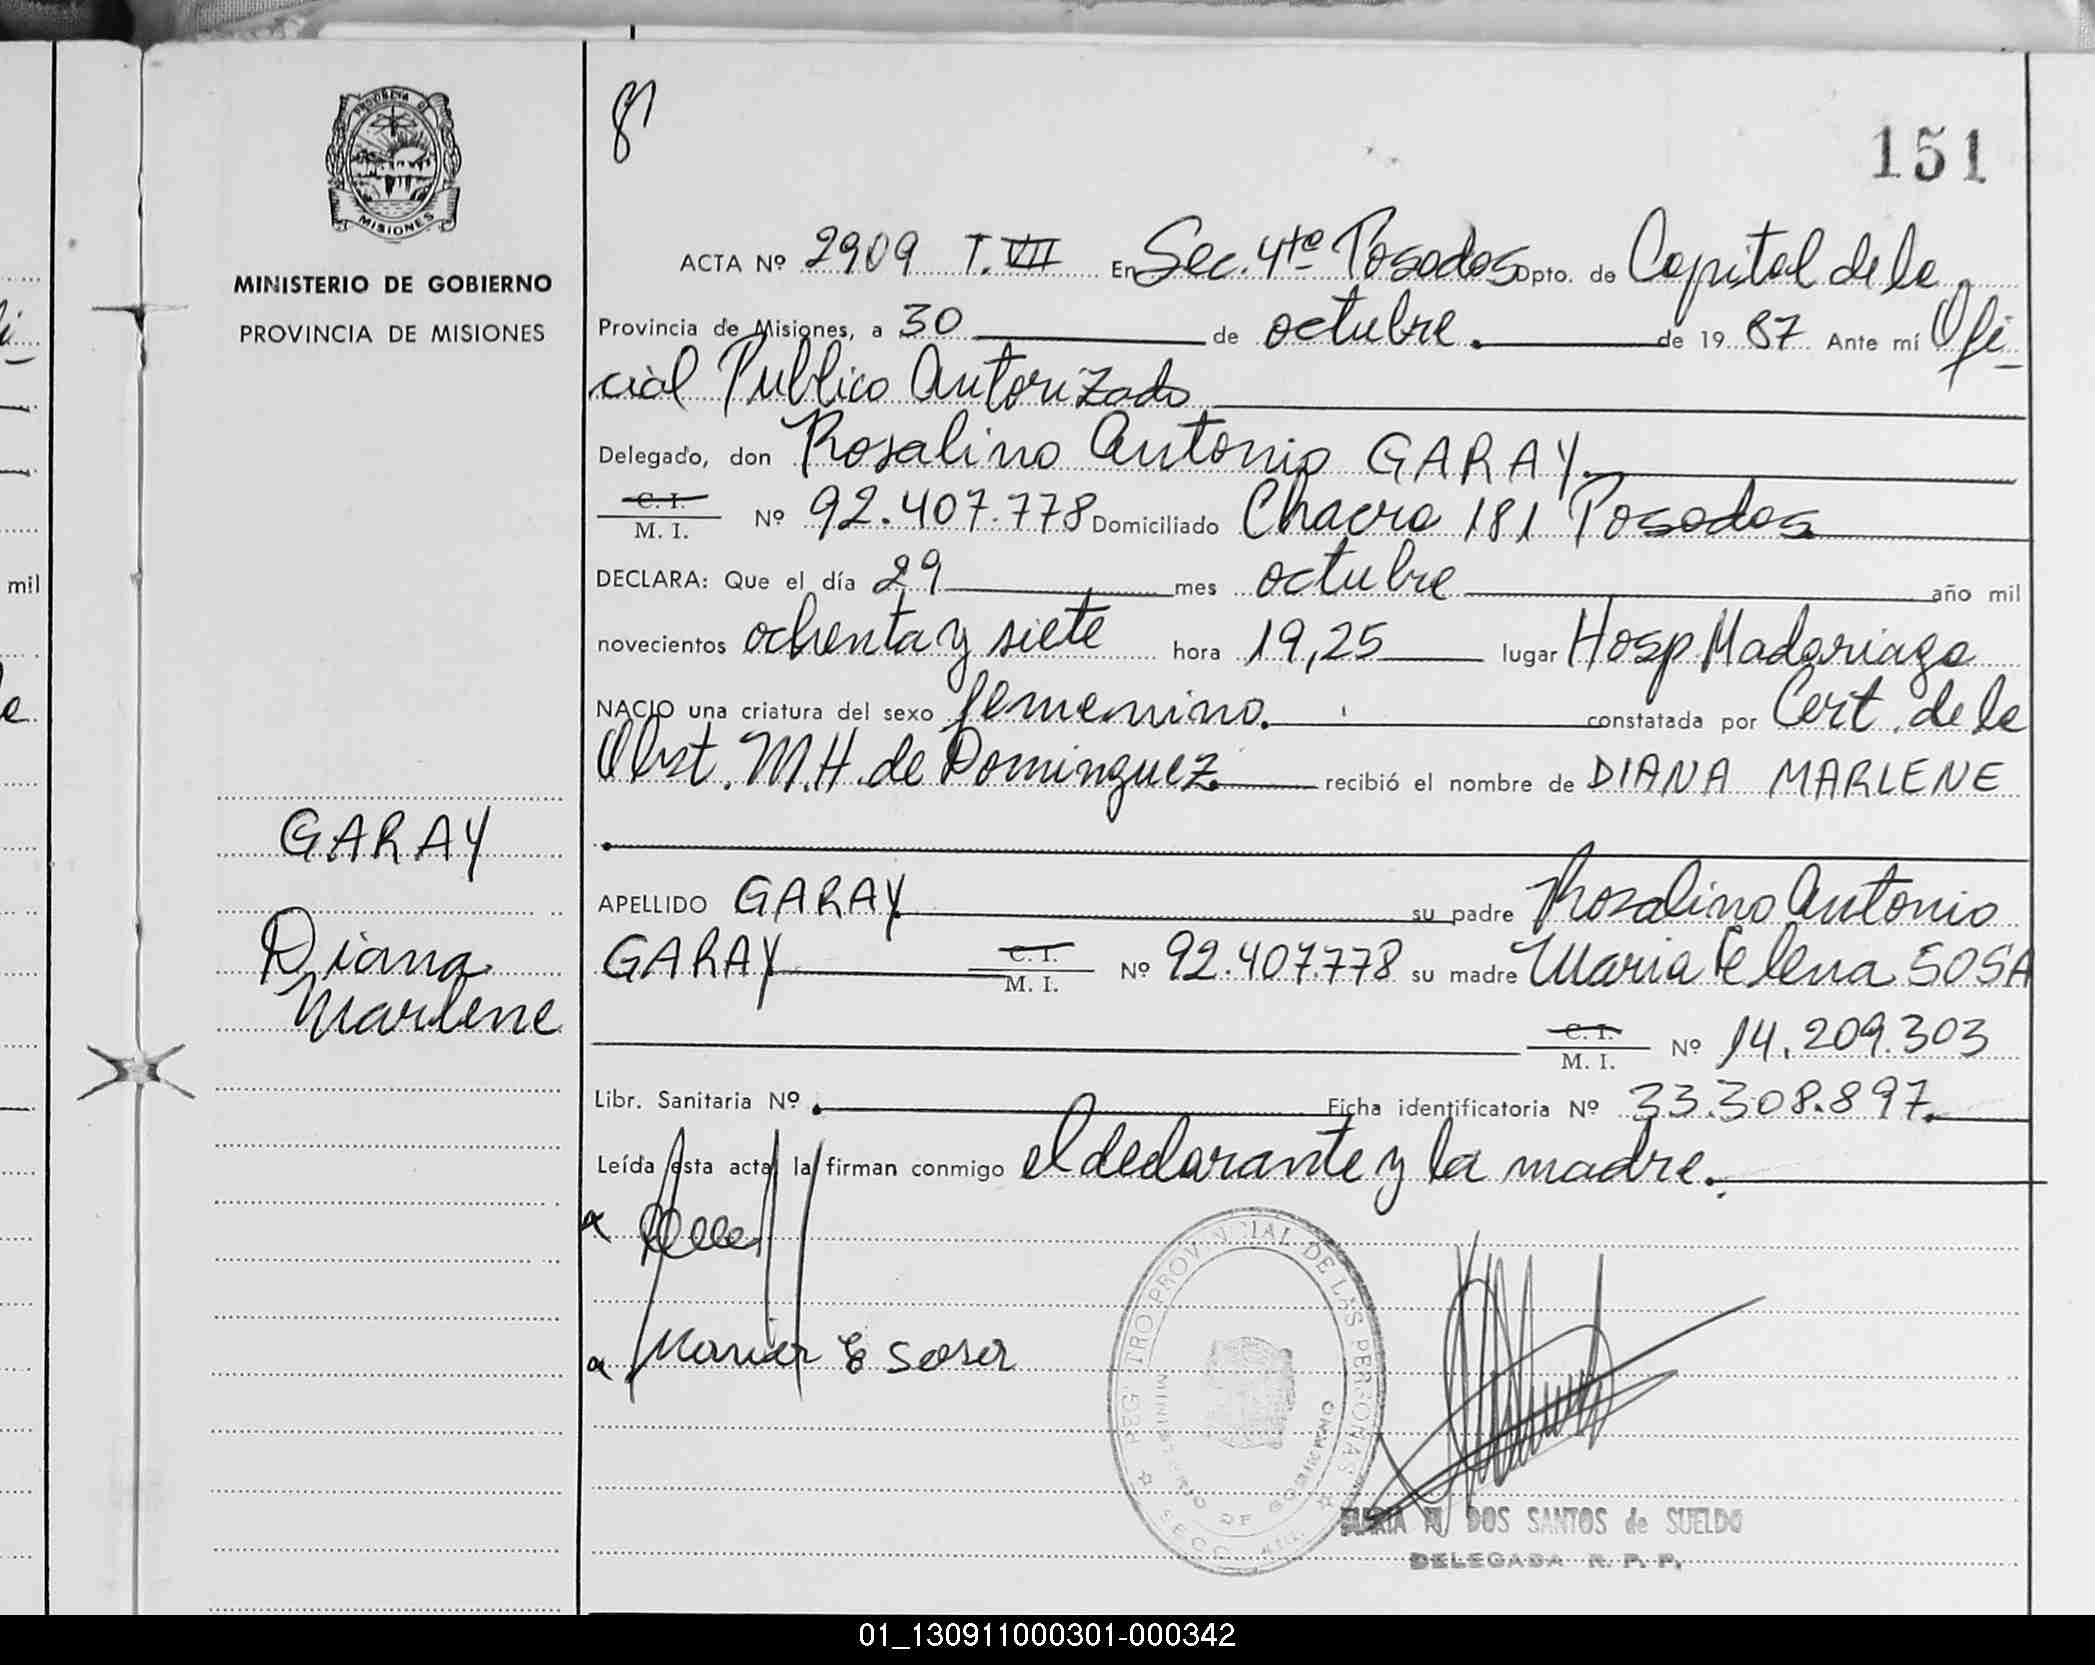 PROVINCIA DE
MISIONES
MINISTERIO DE GOBIERNO
PROVINCIA DE MISIONES
GARAY
Diana
Marlene
151
ACTA Nº 2909 T. VII En Sec. 4ta Posadas Dpto. de Capital de la
Provincia de Misiones, a 30 de octubre. de 19 87 Ante mí Ofi-
cial Publico Autorizado
Delegado, don Rosalino Antonio GARAY.
C. I.
M. I. Nº 92.407.778 Domiciliado Chacra 181 Posadas
DECLARA: Que el día 29 mes octubre año mil
novecientos ochenta y siete hora 19,25 lugar Hosp Madariaga
NACIO una criatura del sexo femenino. constatada por Cert. de la
Obst. M.H. de Dominguez recibió el nombre de DIANA MARLENE
APELLIDO GARAY su padre Rosalino Antonio
GARAY C. I.
M. I. Nº 92.407.778 su madre Maria Elena SOSA
C. I.
M. I. Nº 14.209.303
Libr. Sanitaria Nº Ficha identificatoria Nº 33.308.897.
Leída esta acta la firman conmigo el declarante y la madre.
Maria E Sosa
REGISTRO PROVINCIAL DE LAS PERSONAS
MINISTERIO DE GOBIERNO
SECC. 4ta.
DOS SANTOS de SUELDO
DELEGADA R. P. P.
mil
01_130911000301-000342